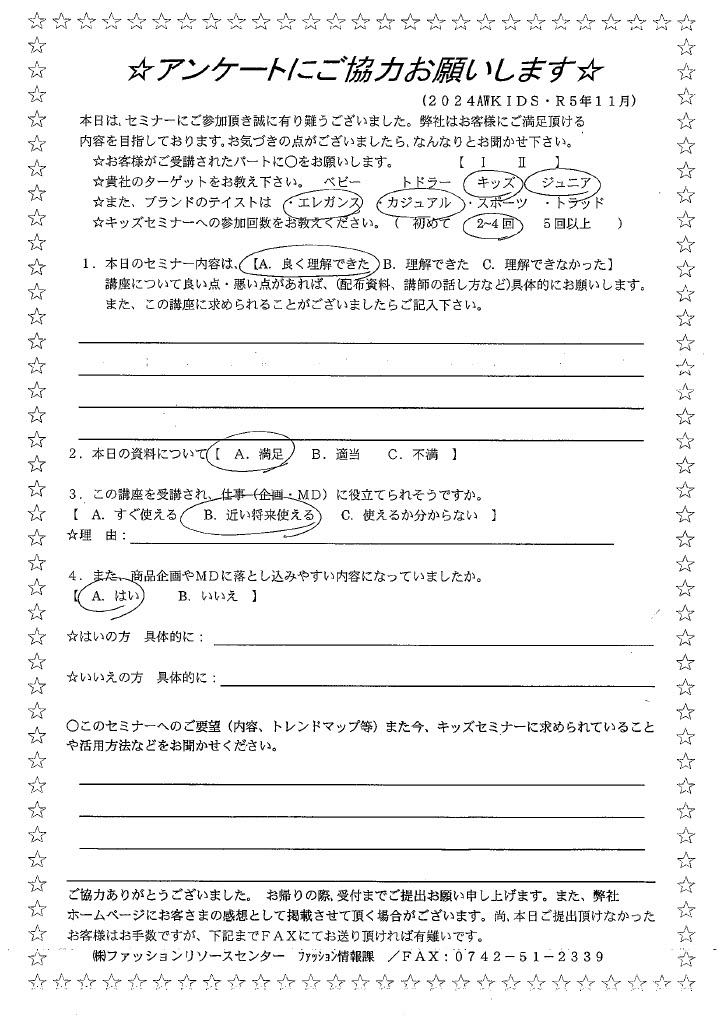 ☆アンケートにご協力お願いします☆
(2024AWKIDS・R5年11月)
本日は、セミナーにご参加頂き誠に有り難うございました。弊社はお客様にご満足頂ける
内容を目指しております。お気づきの点がございましたら、なんなりとお聞かせ下さい。
☆お客様がご受講されたパートに○をお願いします。 【 Ⅰ Ⅱ 】
☆貴社のターゲットをお教え下さい。 ベビー トドラー キッズ ジュニア
☆また、ブランドのテイストは ・エレガンス ・カジュアル ・スポーツ ・トラッド
☆キッズセミナーへの参加回数をお教えください。( 初めて 2~4回 5回以上 )
1．本日のセミナー内容は、【A．良く理解できた B．理解できた C．理解できなかった】
講座について良い点・悪い点があれば、(配布資料、講師の話し方など)具体的にお願いします。
また、この講座に求められることがございましたらご記入下さい。
2．本日の資料について【 A．満足 B．適当 C．不満 】
3．この講座を受講され、仕事（企画・MD）に役立てられそうですか。
【 A．すぐ使える B．近い将来使える C．使えるか分からない 】
☆理 由：
4．また、商品企画やMDに落とし込みやすい内容になっていましたか。
【 A．はい B．いいえ 】
☆はいの方 具体的に：
☆いいえの方 具体的に：
○このセミナーへのご要望（内容、トレンドマップ等）また今、キッズセミナーに求められていること
や活用方法などをお聞かせください。
ご協力ありがとうございました。 お帰りの際、受付までご提出お願い申し上げます。また、弊社
ホームページにお客さまの感想として掲載させて頂く場合がございます。尚、本日ご提出頂けなかった
お客様はお手数ですが、下記までFAXにてお送り頂ければ有難いです。
㈱ファッションリソースセンター ファッション情報課 ／FAX：0742-51-2339